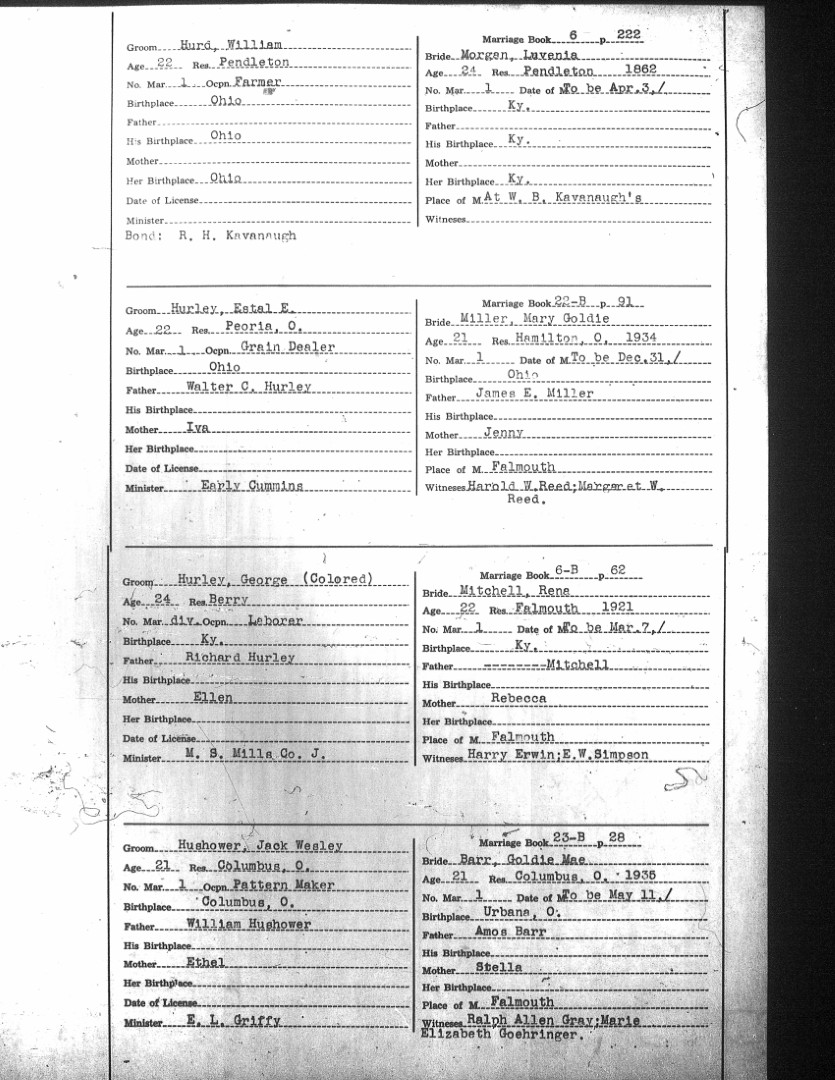 Groom Hurd, William
Age 22 Res. Pendleton
No. Mar. 1 Ocpn. Farmer
Birthplace Ohio
Father
His Birthplace Ohio
Mother
Her Birthplace Ohio
Date of License
Minister
Bond: R. H. Kavanaugh
Marriage Book 6 p. 222
Bride Morgan, Luvenia
Age 24 Res. Pendleton 1862
No. Mar. 1 Date of M. To be Apr.3,/
Birthplace Ky.
Father
His Birthplace Ky.
Mother
Her Birthplace Ky.
Place of M. At W. B. Kavanaugh's
Witnesses
Groom Hurley, Estal E.
Age 22 Res. Peoria, O.
No. Mar. 1 Ocpn. Grain Dealer
Birthplace Ohio
Father Walter C. Hurley
His Birthplace
Mother Iva
Her Birthplace
Date of License
Minister Early Cummins
Marriage Book 22-B p. 91
Bride Miller, Mary Goldie
Age 21 Res. Hamilton, O. 1934
No. Mar. 1 Date of M. To be Dec.31,/
Birthplace Ohio
Father James E. Miller
His Birthplace
Mother Jenny
Her Birthplace
Place of M. Falmouth
Witnesses Harold W.Reed;Margaret W.
Reed.
Groom Hurley, George (Colored)
Age 24 Res. Berry
No. Mar. div. Ocpn. Laborer
Birthplace Ky.
Father Richard Hurley
His Birthplace
Mother Ellen
Her Birthplace
Date of License
Minister M. S. Mills Co. J.
Marriage Book 6-B p. 62
Bride Mitchell, Rene
Age 22 Res. Falmouth 1921
No. Mar. 1 Date of M. To be Mar.7,/
Birthplace Ky.
Father --------Mitchell
His Birthplace
Mother Rebecca
Her Birthplace
Place of M. Falmouth
Witnesses Harry Erwin;E.W.Simpson
Groom Hushower, Jack Wesley
Age 21 Res. Columbus, O.
No. Mar. 1 Ocpn. Pattern Maker
Birthplace Columbus, O.
Father William Hushower
His Birthplace
Mother Ethel
Her Birthplace
Date of License
Minister E. L. Griffy
Marriage Book 23-B p. 28
Bride Barr, Goldie Mae
Age 21 Res. Columbus, O. 1935
No. Mar. 1 Date of M. To be May 11,/
Birthplace Urbana, O.
Father Amos Barr
His Birthplace
Mother Stella
Her Birthplace
Place of M. Falmouth
Witnesses Ralph Allen Gray;Marie
Elizabeth Goehringer.